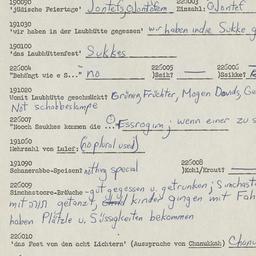 190090 225003
'Jüdische Feiertage' Jontefs, Jontoffem Einzahl: Jontef
191030
'wir haben in der Laubhütte gegessen' wir haben indie Sukke g
190100
'das Laubhüttenfest' Sukkes
225004 225005 225006
"Behängt wie e S..." no )Seik? )Sukke?
191020
Womit Laubhütte geschmückt? Grünem, Früchter, Mogen Dovids, Ge
Not schobbeslampe
225007
"Nooch Sukkes kommen die ... Essrogim; wenn einer zu s
191060
Mehrzahl von Lulef: (no plural used)
191090 225008
Schanerabbe-Speisen? nothing special )Kohl/Kraut?
225009
Simchestoore-Bräuche - gut gegessen u. getrunken; Simchast
mit getanzt, kinder gingen mit Fah
haben Plätzle u. Süssigkeiten bekommen
225010
'das Fest von den acht Lichtern' (Aussprache von Chanukkah) Chanu